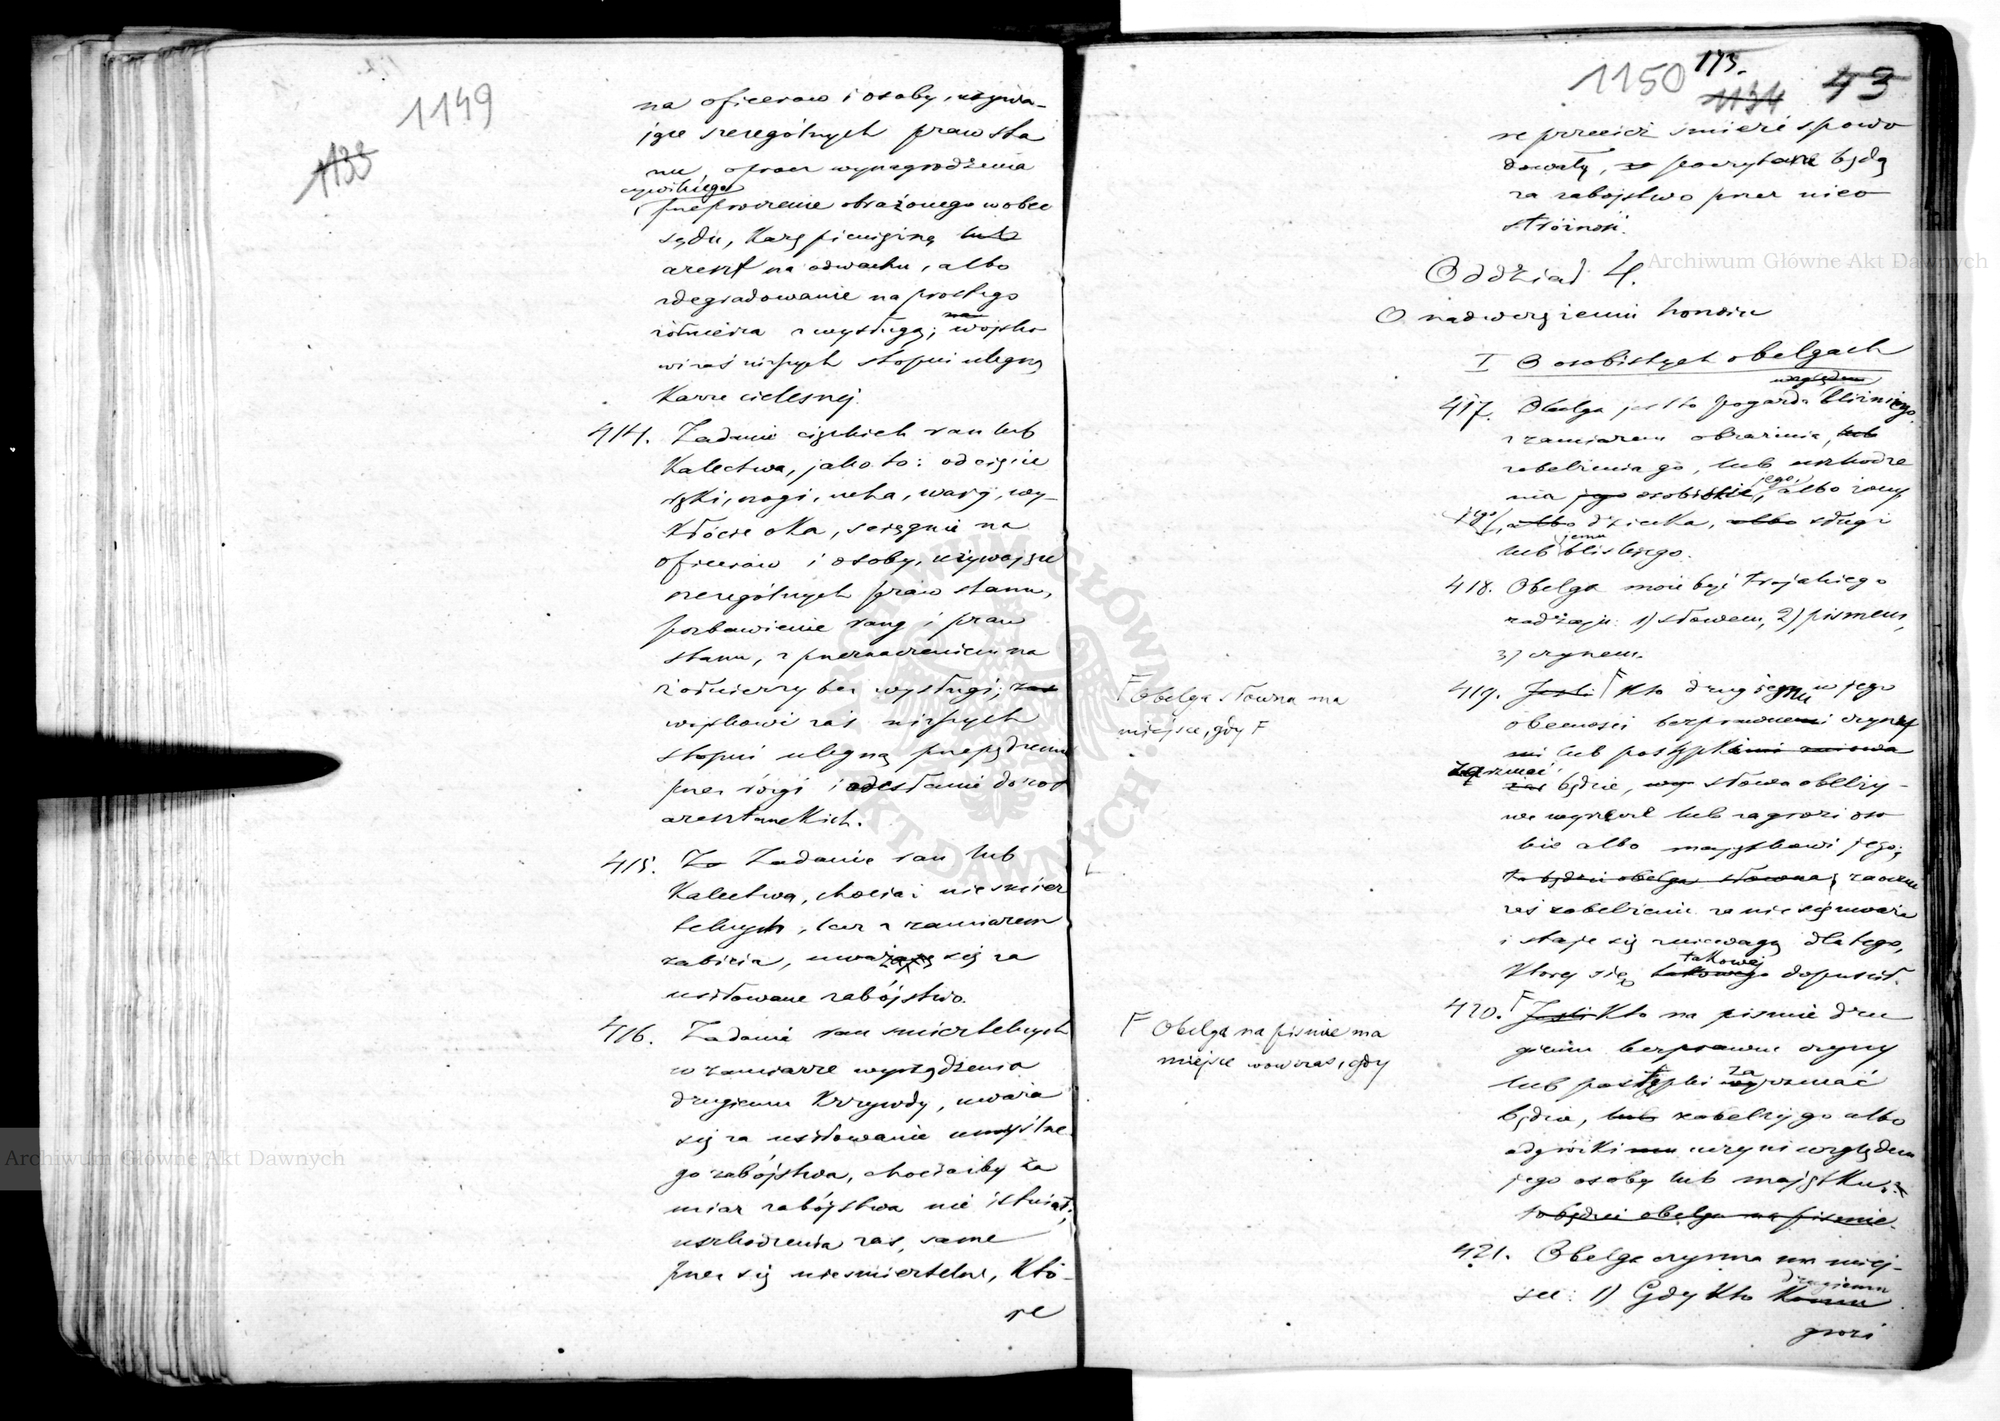 1149
1133
na oficerów i osoby, używa-
jące szczególnych praw sta
nu, oprócz wynagrodzenia
cywilnego
i przeproszenie obrażonego wobec
sądu, karę pieniężną lub
areszt na odwachu, albo
zdegradowanie na prostego
żołnierza z wysługą; wojsko
wi zaś niższych stopni ulegną
karze cielesnej.
414. Zadanie ciężkich ran lub
kalectwa, jako to: odcięcie
ręki, nogi, ucha, wargi, wy-
kłócie oka, ściągnie na
oficerów i osoby, używające
szczególnych praw stanu,
pozbawienie rang i praw
stanu, z przeznaczeniem na
żołnierzy bez wysługi; zaś
wojskowi zaś niższych
stopni ulegną przepędzeniu
przez rózgi i odesłanie do rot
aresztanckich.
415. Za Zadanie ran lub
kalectwa, chociaż nieśmier
telnych, lecz z zamiarem
zabicia, uważa się za
usiłowane zabójstwo.
416. Zadanie ran śmiertelnych
w zamiarze wyrządzenia
drugiemu krzywdy, uważa
się za usiłowanie umyślne
go zabójstwa, chociażby za
miar zabójstwa nie istniał;
uszkodzenia zaś, same
przez się nieśmiertelne, któ-
re
1150 175. 1134 43
re przecież śmierć spowo
dowały, poczytane będą
za zabójstwo przez nieo
stróżność.
Oddział 4.
O nadwerężeniu honoru
I O osobistych obelgach
względem
417. Obelga jest to pogarda bliźniego
z zamiarem obrażenia, lub
zelżenia go, lub uszkodze
jego,
nia jego osobiście, albo żony
jego, albo dziecka, albo sługi
jemu
lub bliskiego.
418. Obelga może być trojakiego
rodzaju: 1) słowem, 2) pismem,
3) czynem.
419. Jeśli F Kto drugiemu w jego
obecności bezprawnemi czyny
mi lub postępkami
zarzucać
zaś będzie, słowa obelży-
we wyrzecze lub zagrozi oso
bie albo majątkowi jego;
to będzie obelga słowna;
zaś zelżenie za nic się uważa
i staje się zniewagą dla tego,
takowej
który się takowego dopuścił.
F Obelga słowna ma
miejsce, gdy F
420. F Jeśli Kto na piśmie dru
giemu bezprawne czyny
za
lub postępki wyrzucać
będzie, lub zelży go albo
odgróżki mu uczyni względem
jego osoby lub majątku.
to będzie obelga na piśmie.
F Obelga na piśmie ma
miejsce wówczas, gdy
421. Obelga czynna ma miej-
drugiemu
sce: 1) Gdy Kto komu
grozi
Archiwum Główne Akt Dawnych
Archiwum Główne Akt Dawnych
ARCHIWUM GŁÓWNE AKT DAWNYCH